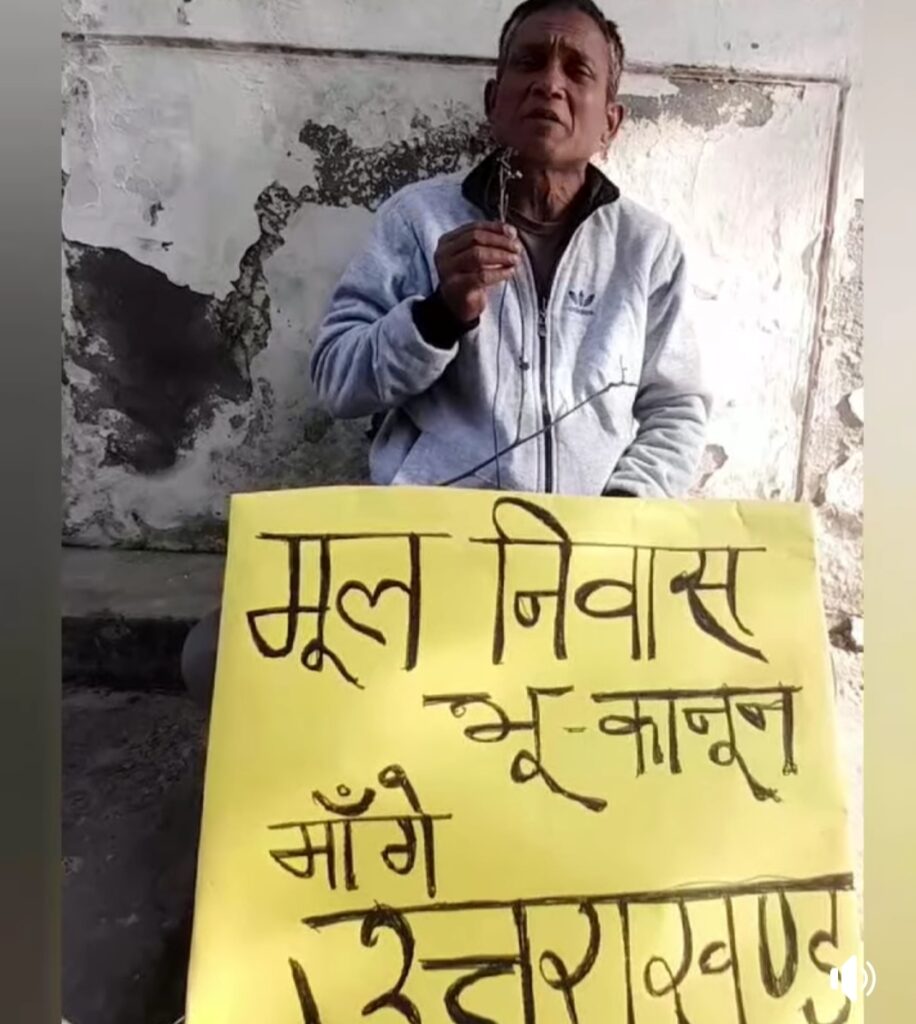 मूल निवास
भू-कानून
माँगे
उत्तराखण्ड